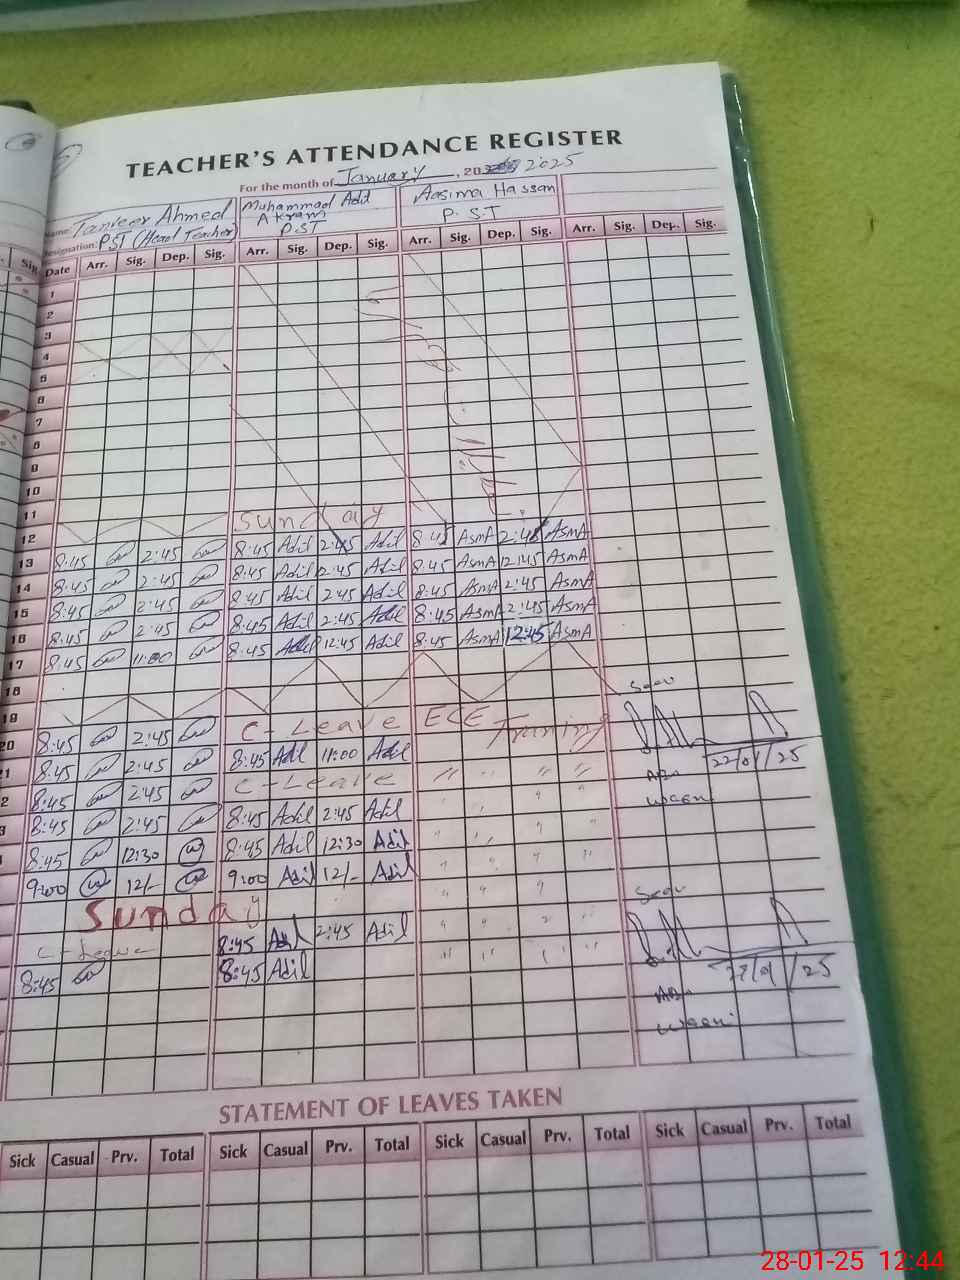 TEACHER'S ATTENDANCE REGISTER
For the month of January, 20 2025
Name: Tanveer Ahmed Muhammad Adil Akram Aasima Hassan
Designation: PST (Head Teacher) P.ST P.S.T
Date Arr. Sig. Dep. Sig. Arr. Sig. Dep. Sig. Arr. Sig. Dep. Sig. Arr. Sig. Dep. Sig.
1
2
3
4
5
6
7
8
9
10
11
12 Sunday
13 8:45 2:45 8:45 Adil 2:45 Adil 8:45 AsmA 2:45 AsmA
14 8:45 2:45 8:45 Adil 2:45 Adil 8:45 AsmA 12:45 AsmA
15 8:45 2:45 8:45 Adil 2:45 Adil 8:45 AsmA 2:45 AsmA
16 8:45 2:45 8:45 Adil 2:45 Adil 8:45 AsmA 2:45 AsmA
17 8:45 11:00 8:45 Adil 12:45 Adil 8:45 AsmA 12:45 AsmA
18
19
20 8:45 2:45 C-Leave ECE Training
21 8:45 2:45 8:45 Adil 11:00 Adil 22/01/25
2 8:45 2:45 C-Leave " " " "
3 8:45 2:45 8:45 Adil 2:45 Adil " " " "
8:45 12:30 8:45 Adil 12:30 Adil " " " "
9:00 12/- 9:00 Adil 12/- Adil " " " "
Sunday " " "
C-Leave 8:45 Adil 2:45 Adil " " " "
8:45 8:45 Adil " " " "
STATEMENT OF LEAVES TAKEN
Sick Casual Prv. Total Sick Casual Prv. Total Sick Casual Prv. Total Sick Casual Prv. Total
28-01-25 12:44